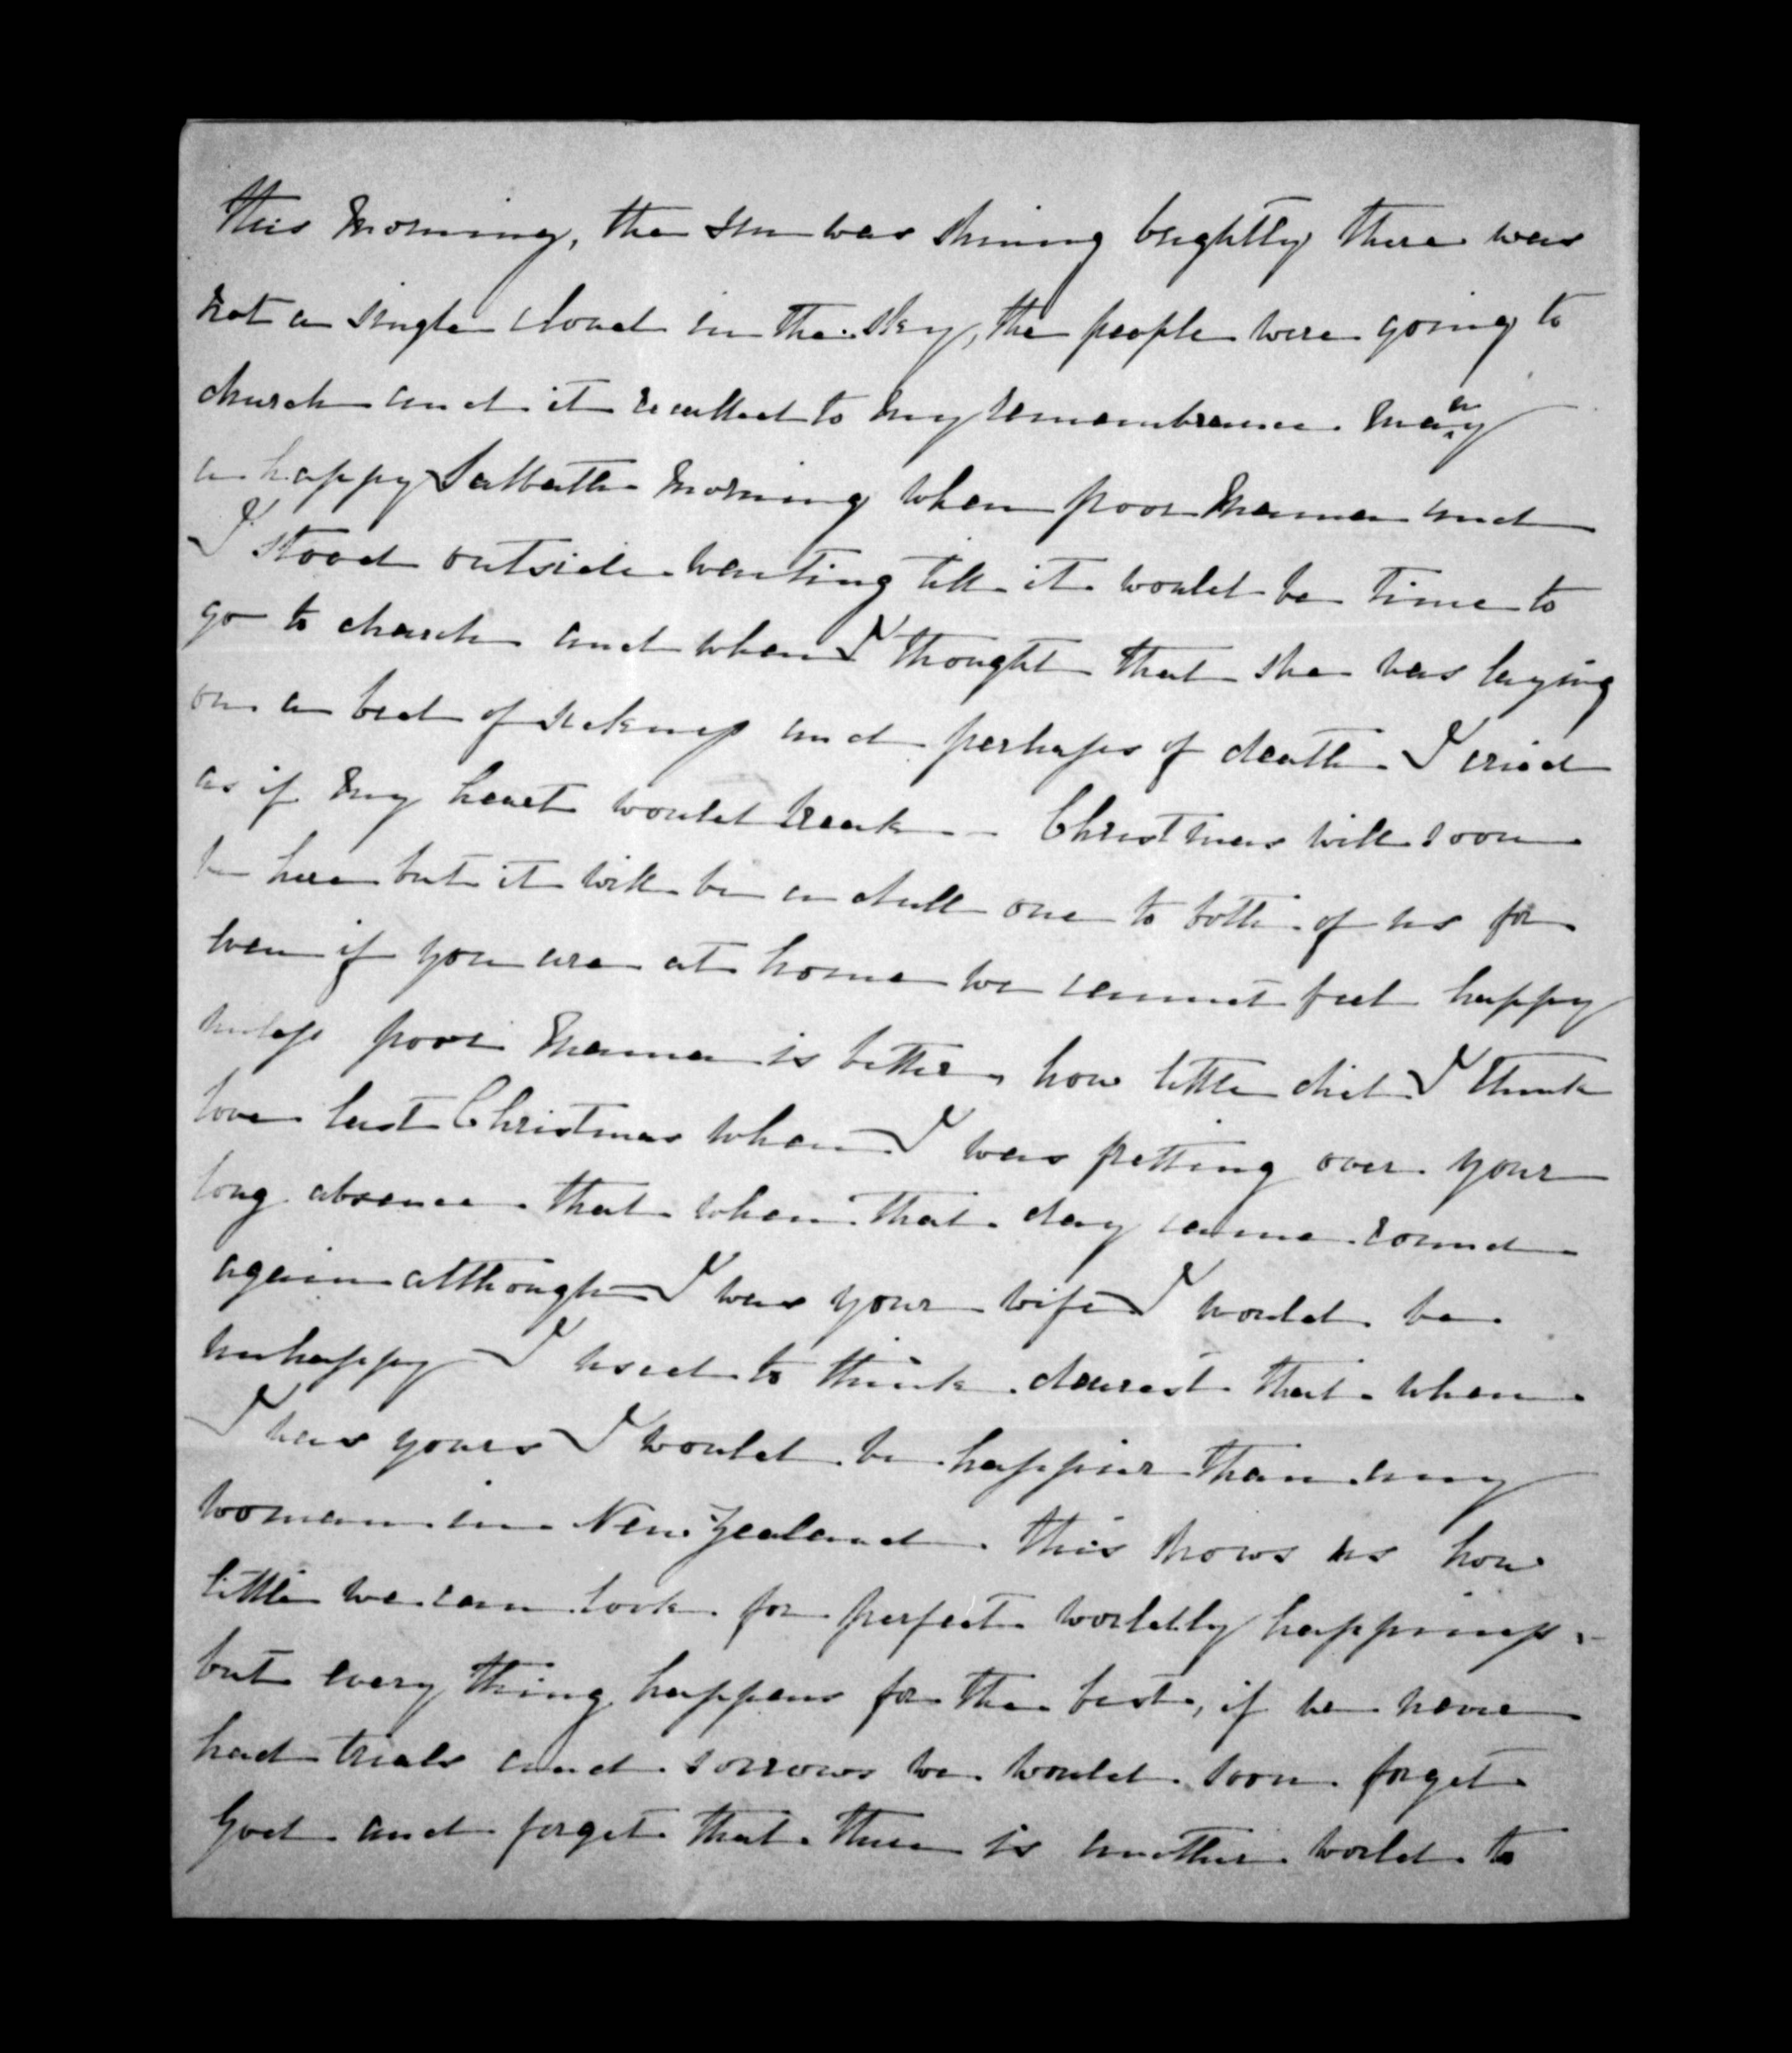 this morning, the sun was shining brightly there was
not a single cloud in the sky, the people were going to
church and it recalled to my remembrance many
a happy Sabbath morning when poor Mama and
I stood outside waiting till it would be time to
go to church and when I thought that she was laying
on a bed of sickness and perhaps of death I cried
as if my heart would break - Christmas will soon
be here but it will be a dull one to both of us for
even if you are at home we cannot feel happy
unless poor Mama is better, how little did I think
love last Christmas when I was fretting over your
long absence that when that day came round
again although I was your wife I would be
unhappy I used to think dearest that when
I was yours I would be happier than any
woman in New Zealand. this shows us how
little we can look for perfect worldly happiness.
but every thing happens for the best, if we never
had trials and sorrows we would soon forget
God and forget that there is another world to